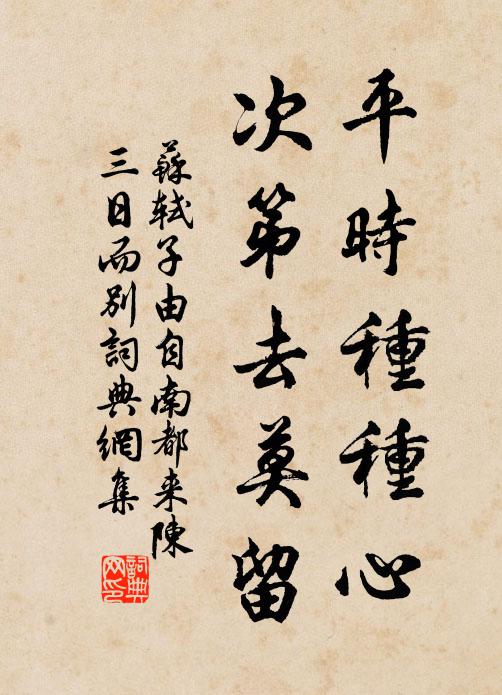 平時種種心
次第去莫留
蘇軾子由自南都来陳
三日而別詞典網集
詞典网印